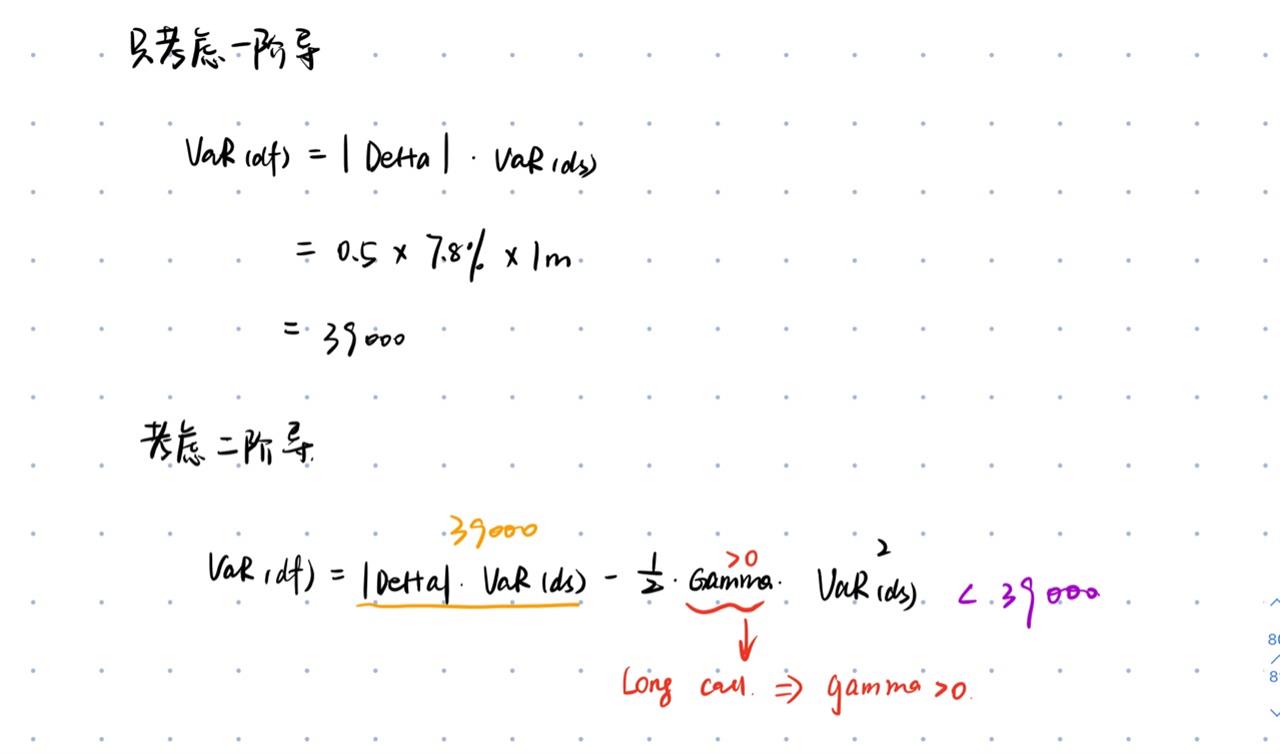 只考虑一阶导
VaR(df) = |Delta| · VaR(ds)
= 0.5 × 7.8% × 1m
= 39000
考虑二阶导.
39000
>0
VaR(df) = |Delta| · VaR(ds) - 1/2 · Gamma · VaR(ds)² < 39000
Long call. ⇒ gamma >0.